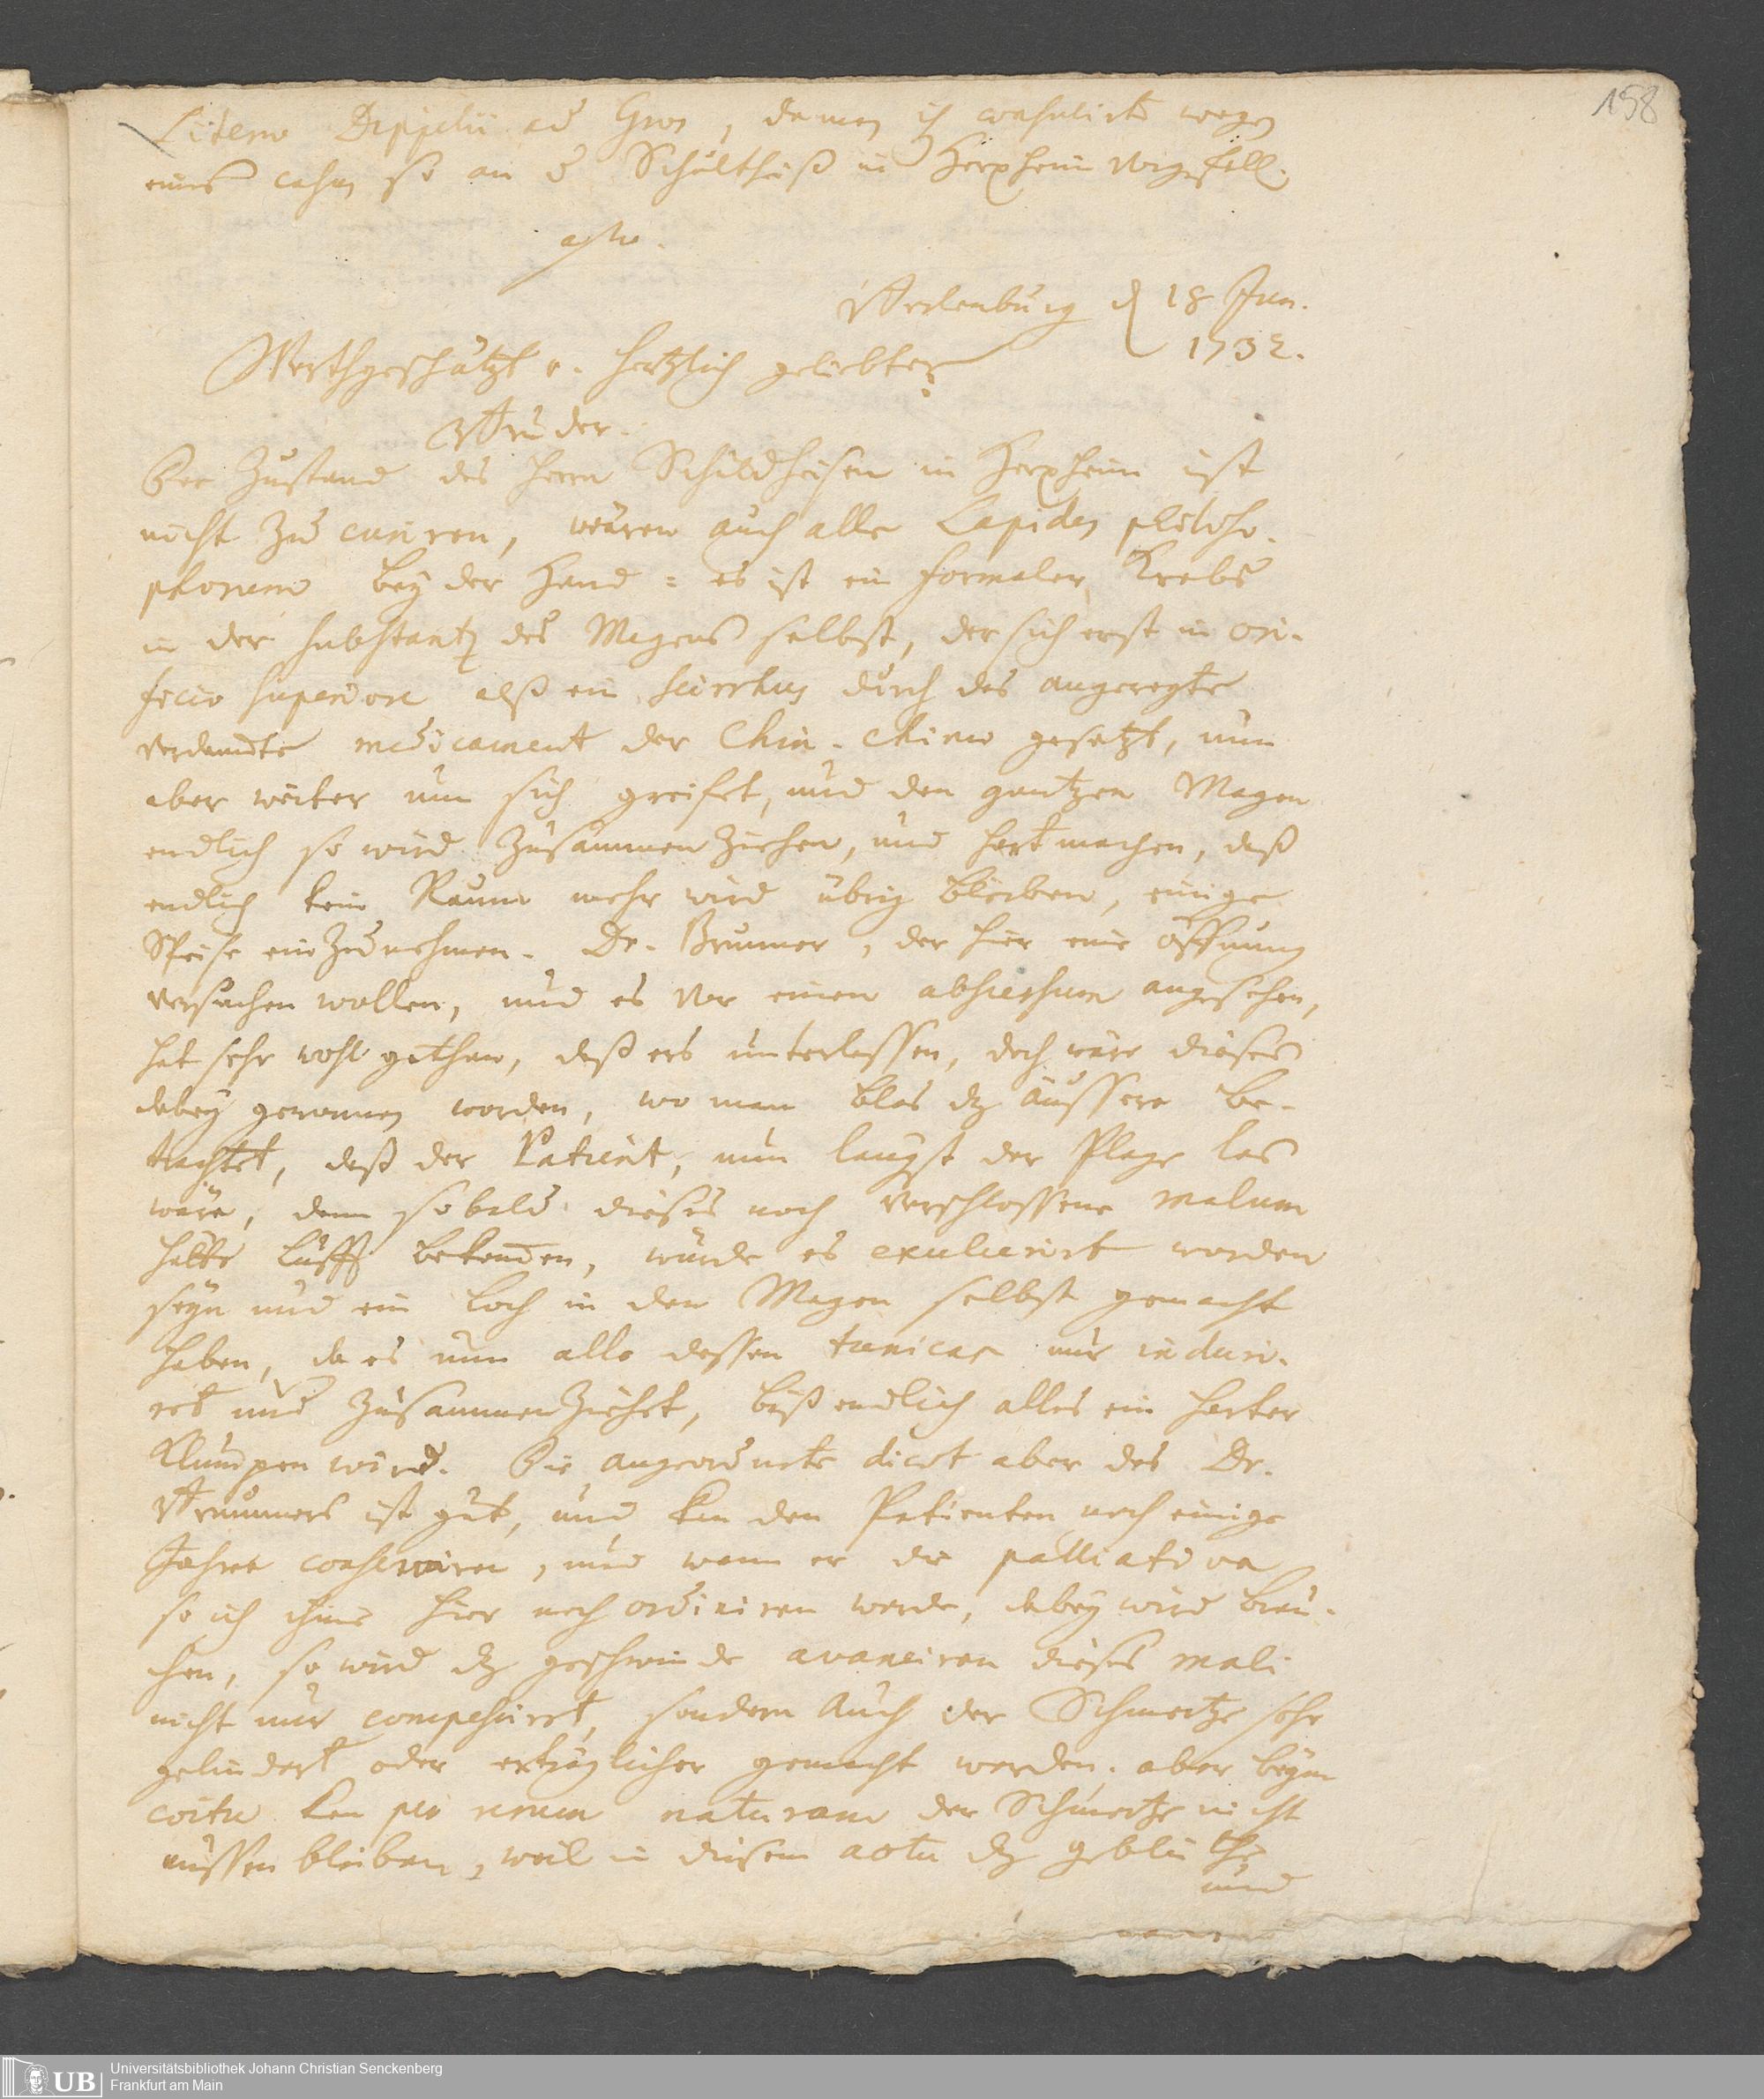 158
Literae Dippelii ad Gros, den ich consulirte wegen
eines casus so an d Schultheiß in Herxheim vorgefall.
Berlenburg d 18 Jun.
1732.
Werthgeschätzt u. hertzlich geliebter
Bruder.
Der Zustand des Herrn Schuldheisen in Herxheim ist
nicht zu curiren, wären auch alle Lapides philoso-
phorum bey der Hand: es ist ein formaler Krebs
in der substantz des Magens selbst, der sich erst in ori-
ficio superiore alß ein scirrhus durch das angeregte
verdammte medicament der Chin-China gesetzt, nun
aber weiter um sich greifet, und den gantzen Magen
endlich so wird zusammen ziehen, und hart machen, daß
endlich kein Raum mehr wird übrig bleiben, einige
Speise einzunehmen. Dr. Brunner, der hier eine öffnung
versuchen wollen, und es vor einen abscessum angesehen,
hat sehr wohl gethan, daß ers unterlassen, doch wäre dieses
dabey gewonnen worden, wo man blos dz äussere be-
trachtet, daß der Patient, nun längst der Plage los
wäre, denn so bald dieses noch verschlossene malum
hätte lufft bekommen, würde es exulcerirt worden
seyn und ein Loch in den Magen selbst gemacht
haben, da es nun alle dessen tunicas nur induri-
ret und zusammen ziehet, biß endlich alles ein harter
Klumpen wird. Die angeordnete diaet aber des Dr.
Brunners ist gut, und kan den Patienten noch einige
Jahre conserviren, und wann er die palliativa
so ich ihme hier noch ordiniren werde, dabey wird brau-
chen, so wird dz geschwinde avanciren dieses mali
nicht nur compesciret, sondern auch der Schmertze sehr
gelindert oder erträglicher gemacht werden. aber beym
coitu kan per rerum naturam der Schmertze nicht
aussen bleiben, weil in diesem actu dz geblüthe
und
UB
Universitätsbibliothek Johann Christian Senckenberg
Frankfurt am Main